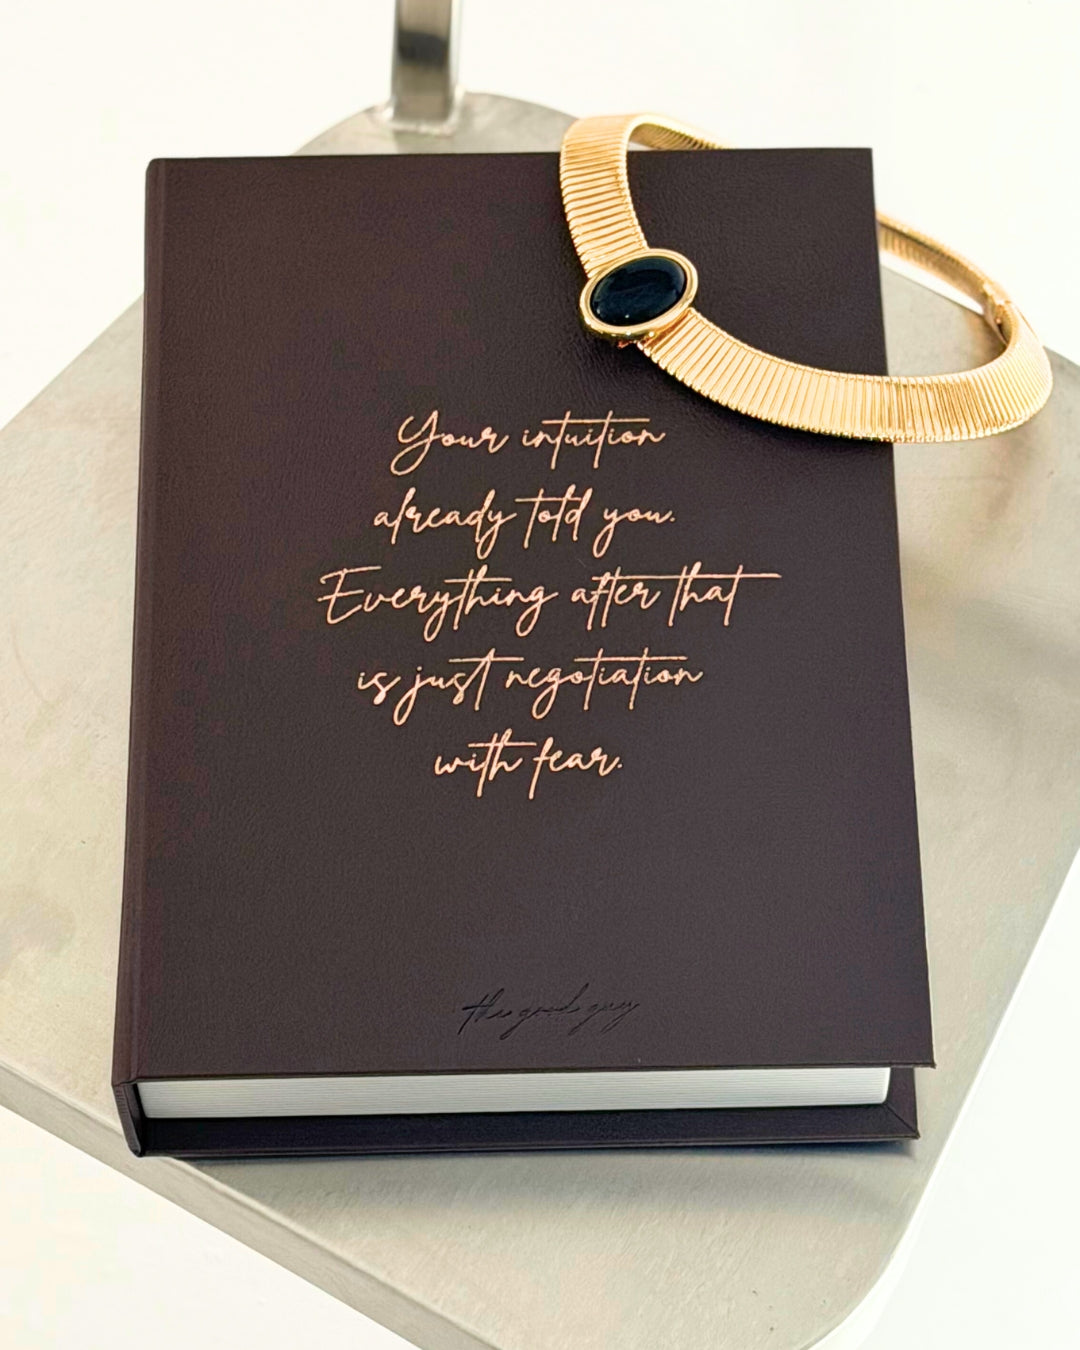 Your intuition
already told you.
Everything after that
is just negotiation
with fear.
the good guy